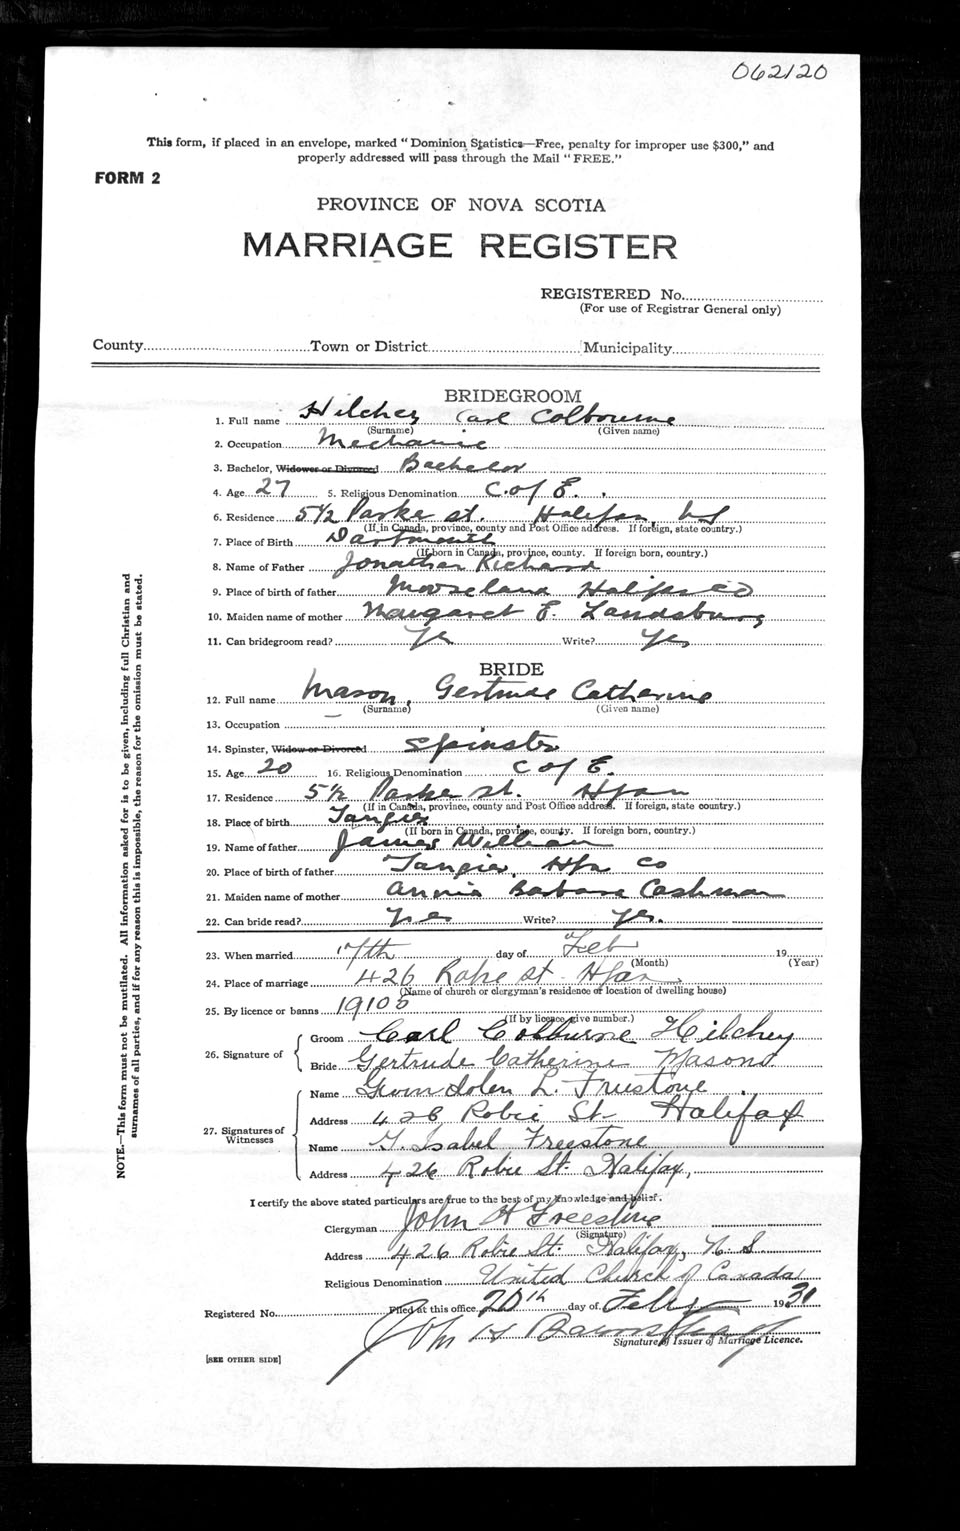 062120
This form, if placed in an envelope, marked "Dominion Statistics—Free, penalty for improper use $300," and
properly addressed will pass through the Mail "FREE."
FORM 2
PROVINCE OF NOVA SCOTIA
MARRIAGE REGISTER
REGISTERED No.
(For use of Registrar General only)
County Town or District Municipality
BRIDEGROOM
1. Full name Hilchey Carl Colbourne
(Surname) (Given name)
2. Occupation Mechanic
3. Bachelor, Widower or Divorced Bachelor
4. Age 27 5. Religious Denomination C. of E.
6. Residence 51/2 Parker st. Halifax, NS
(If in Canada, province, county and Post Office address. If foreign, state country.)
7. Place of Birth Dartmouth
(If born in Canada, province, county. If foreign born, country.)
8. Name of Father Jonathan Richard
9. Place of birth of father Mooseland Halifax Co
10. Maiden name of mother Margaret E. Landsburg
11. Can bridegroom read? Yes Write? Yes
BRIDE
12. Full name Mason, Gertrude Catherine
(Surname) (Given name)
13. Occupation
14. Spinster, Widow or Divorced Spinster
15. Age 20 16. Religious Denomination C of E.
17. Residence 51/2 Parker st. Hfax
(If in Canada, province, county and Post Office address. If foreign, state country.)
18. Place of birth Tangier
(If born in Canada, province, county. If foreign born, country.)
19. Name of father James William
20. Place of birth of father Tangier, Hfx Co
21. Maiden name of mother Annie Barbara Cashman
22. Can bride read? Yes Write? Yes.
23. When married 17th day of Feb 19
(Month) (Year)
24. Place of marriage 426 Robie st Hfax
(Name of church or clergyman's residence or location of dwelling house)
25. By licence or banns
(If by licence give number.)
26. Signature of
Groom Carl Colburne Hilchey
Bride Gertrude Catherine Mason
27. Signatures of Witnesses
Name Gwendolen L. Freestone
Address 426 Robie St- Halifax
Name G. Isabel Freestone
Address 426 Robie St. Halifax,
I certify the above stated particulars are true to the best of my knowledge and belief.
Clergyman John H Freestone
(Signature)
Address 426 Robie St. Halifax, N. S.
Religious Denomination United Church of Canada
Registered No. Filed at this office 20th day of Feby 1931
John H
Signature of Issuer of Marriage Licence.
[SEE OTHER SIDE]
NOTE.—This form must not be mutilated. All information asked for is to be given, including full Christian and
surnames of all parties, and if for any reason this is impossible, the reason for the omission must be stated.